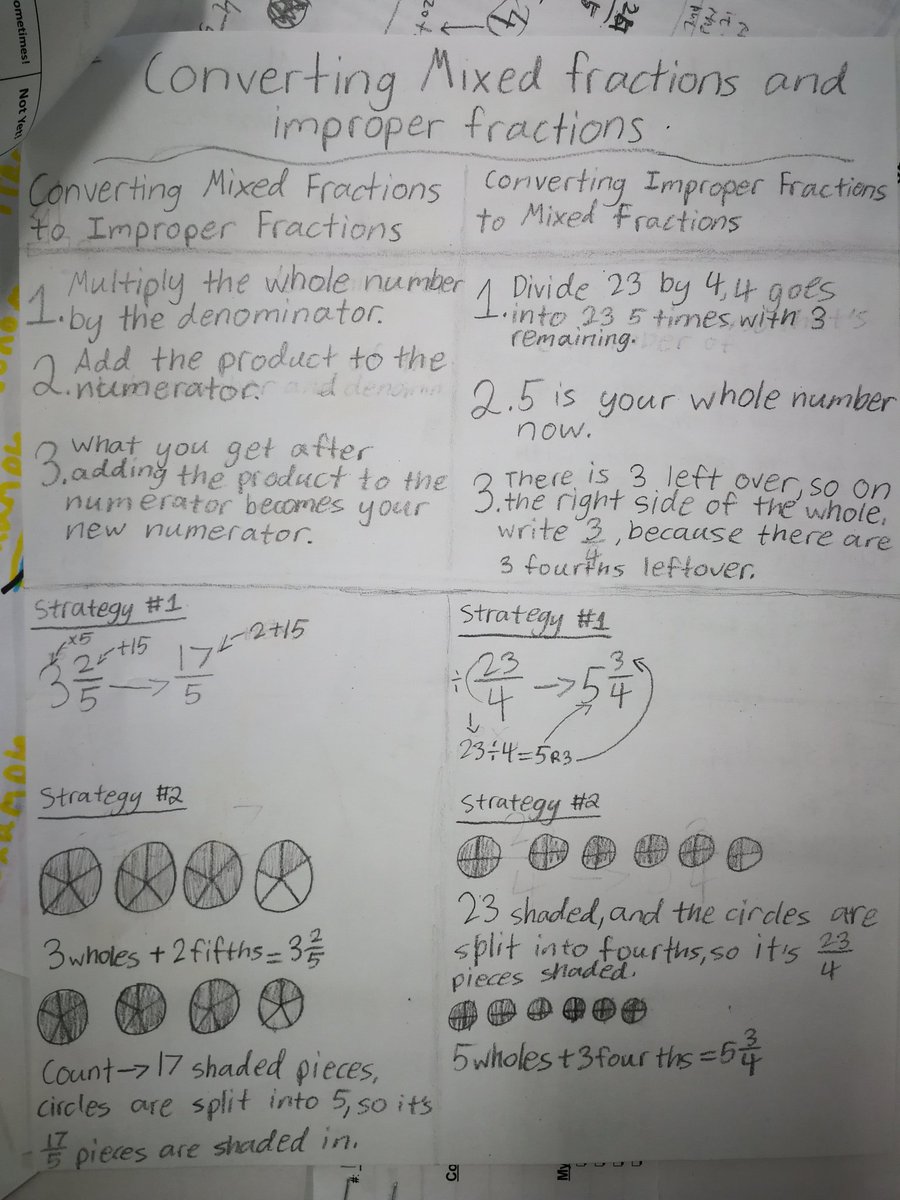 Converting Mixed fractions and
improper fractions.
Converting Mixed Fractions
to Improper Fractions
1. Multiply the whole number
by the denominator.
2. Add the product to the
numerator.
3. What you get after
adding the product to the
numerator becomes your
new numerator.
Strategy #1
x5 +15 2+15
3 2/5 → 17/5
Strategy #2
3 wholes + 2 fifths = 3 2/5
Count → 17 shaded pieces,
circles are split into 5, so it's
17/5 pieces are shaded in.
Converting Improper Fractions
to Mixed Fractions
1. Divide 23 by 4, 4 goes
into 23 5 times, with 3
remaining.
2. 5 is your whole number
now.
3. There is 3 left over, so on
the right side of the whole,
write 3/4, because there are
3 fourths leftover.
Strategy #1
÷ 23/4 → 5 3/4
23÷4=5R3
Strategy #2
23 shaded, and the circles are
split into fourths, so it's 23/4
pieces shaded.
5 wholes + 3 fourths = 5 3/4
ometimes!
Not Yet